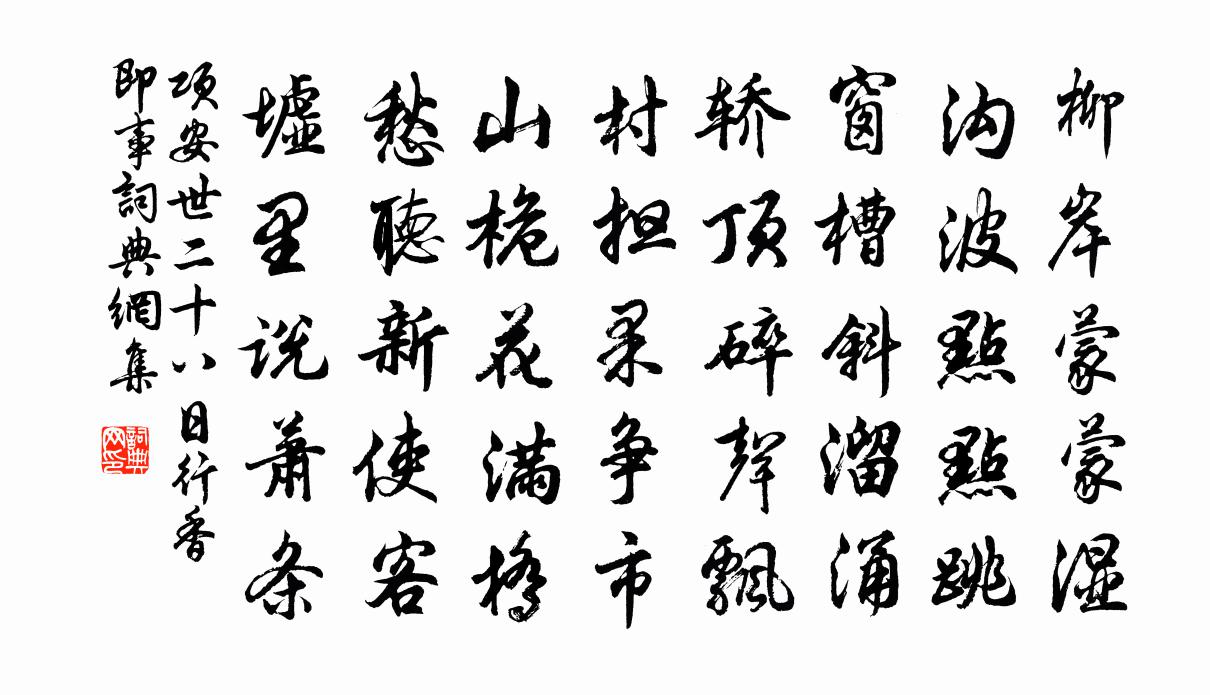 柳岸蒙蒙湿
沟波點點跳
窗槽斜溜涌
轿顶碎聲飄
村担柔争市
山桅花满橋
愁聽新使客
墟里说萧条
项安世二十八日行香
即事詞典網集
詞典网印